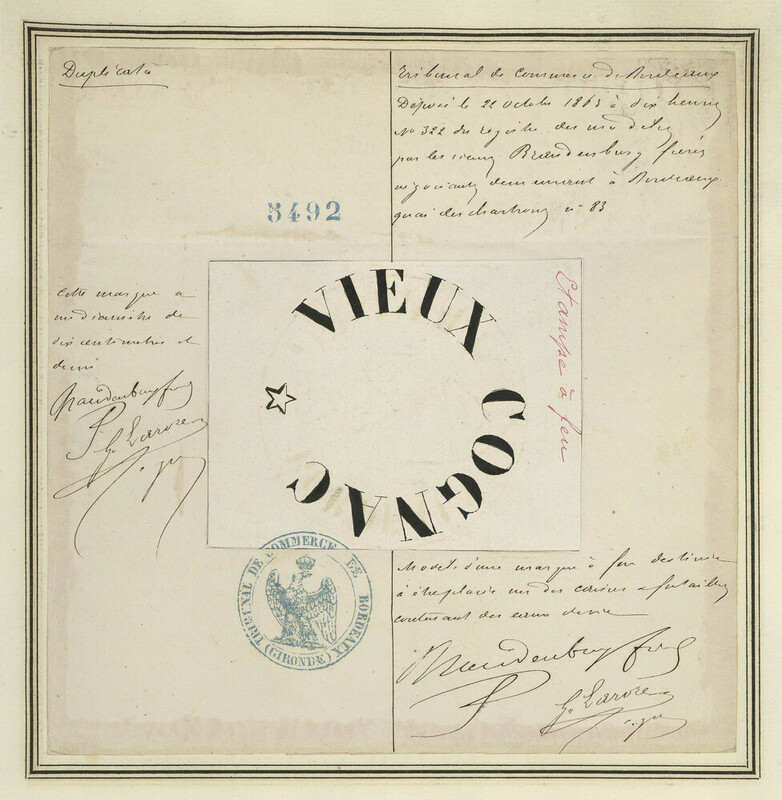 Duplicata
Tribunal de Commerce de Bordeaux
Déposé le 22 octobre 1863 à dix heures
No 322 du registre des
par les sieurs Brandenburg frères
négociants demeurant à Bordeaux
quai des chartrons no 83
5492
VIEUX COGNAC
Etampe à feu
Cette marque a
un diamètre de
dix centimètres et
demi
Brandenburg frères
TRIBUNAL DE COMMERCE DE BORDEAUX
(GIRONDE)
Modèle d'une marque à feu destinée
à être placée sur des caisses & futailles
contenant des eaux de vie
Brandenburg frères